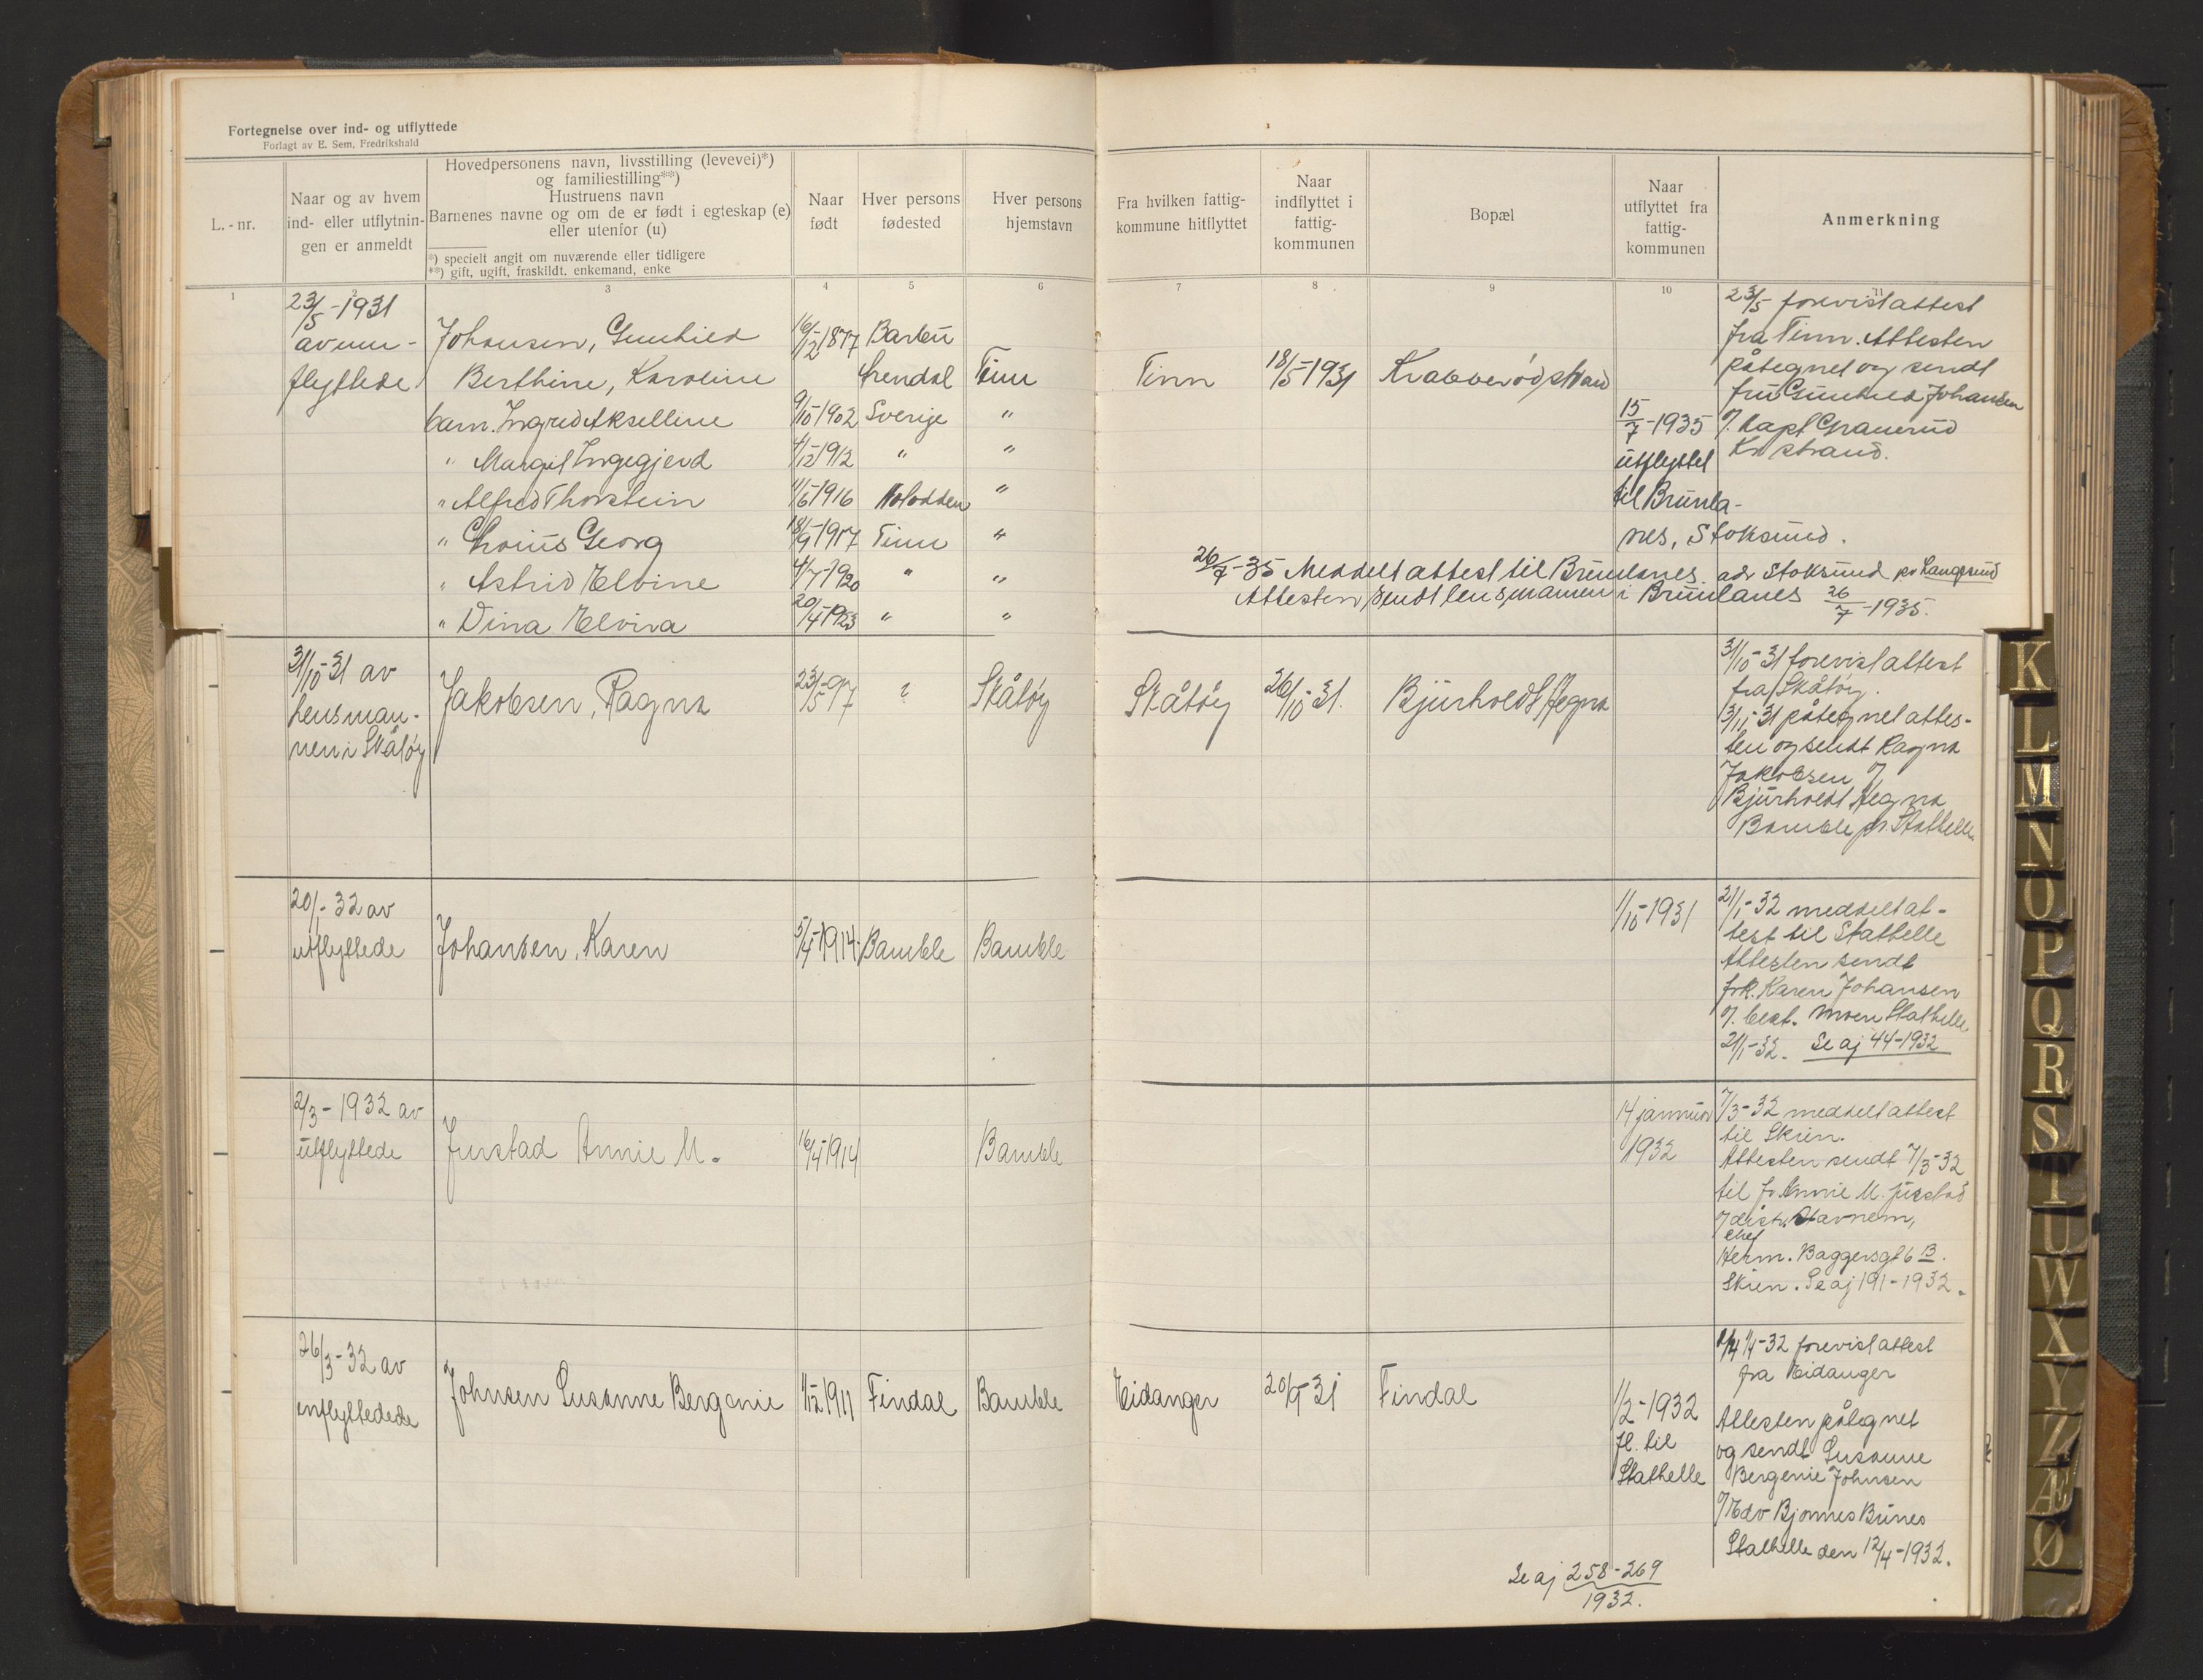 Fortegnelse over ind- og utflyttede
Forlagt av E. Sem, Fredrikshald
L.-nr.
Naar og av hvem
ind- eller utflytnin-
gen er anmeldt
Hovedpersonens navn, livsstilling (levevei)*)
og familiestilling**)
Hustruens navn
Barnenes navne og om de er født i egteskap (e)
eller utenfor (u)
*) specielt angit om nuværende eller tidligere
**) gift, ugift, fraskildt. enkemand, enke
Naar
født
Hver persons
fødested
Hver persons
hjemstavn
Fra hvilken fattig-
kommune hitflyttet
Naar
indflyttet i
fattig-
kommunen
Bopæl
Naar
utflyttet fra
fattig-
kommunen
Anmerkning
1 2 3 4 5 6 7 8 9 10 11
23/5-1931
av inn-
flyttede
Johansen, Gunhild 16/12-1877 Barbu
Berthine, Karoline Arendal Tinn
barn. Ingrid Akselline 9/10-1902 Sverige "
" Margit Ingegjerd 4/12-1912 " "
" Alfred Thorstein 11/6-1916 Notodden "
" Georg 18/9-1917 Tinn "
" Astrid Elvine 4/7-1920 " "
" Dina Elvira 20/4-1923 " "
Tinn 18/5-1931 Krabberødstrand
15/7-1935
utflyttet
til Brunla-
nes, Stoksund.
23/5 forevist attest
fra Tinn. Attesten
påtegnet og sendt
fru Gunhild Johansen
% Kapt Granerud
Kr strand.
26/7-35 Meddelt attest til Brunlanes. adr Stoksund pr Langesund
Attesten sendt lensmannen i Brunlanes 26/7-1935.
31/10-31 av
lensman-
nen i Skåtøy
Jakobsen, Ragna 23/5-97 ? Skåtøy
Skåtøy 26/10-31. Bjurholdt Hegna
31/10-31 forevist attest
fra Skåtøy.
3/11-31 påtegnet attes-
ten og sendt Ragna
Jakobsen %
Bjurholdt Hegna
Bamble pr Stathelle
20/1-32 av
utflyttede
Johansen, Karen 5/4-1914. Bamble Bamble
1/10-1931
21/1-32 meddelt at-
test til Stathelle
Attesten sendt
frk. Karen Johansen
% best. Moen Stathelle
21/1-32. Se aj 44-1932
2/3-1932 av
utflyttede
Justad Annie M. 16/4-1914 Bamble
14 januar
1932
7/3-32 meddelt attest
til Skien.
Attesten sendt 7/3-32
til fr Annie M. Justad
% distr. Stavnem,
chef
Herm. Baggersgt 6 B.
Skien. Se aj 191-1932.
26/3-32 av
innflyttedede
Johnsen Susanne Bergenie 1/12-1911 Findal Bamble
Eidanger 20/9-31 Findal
1/2-1932
fl. til
Stathelle
1/4-32 forevist attest
fra Eidanger
Attesten påtegnet
og sendt Susanne
Bergenie Johnsen
% Edv Bjonnes Bunes
Stathelle den 12/4-1932.
Se aj 258-269
1932.
K
L
M
N
O
P
Q
R
S
T
U
W
X
Y
Z
Æ
Ø